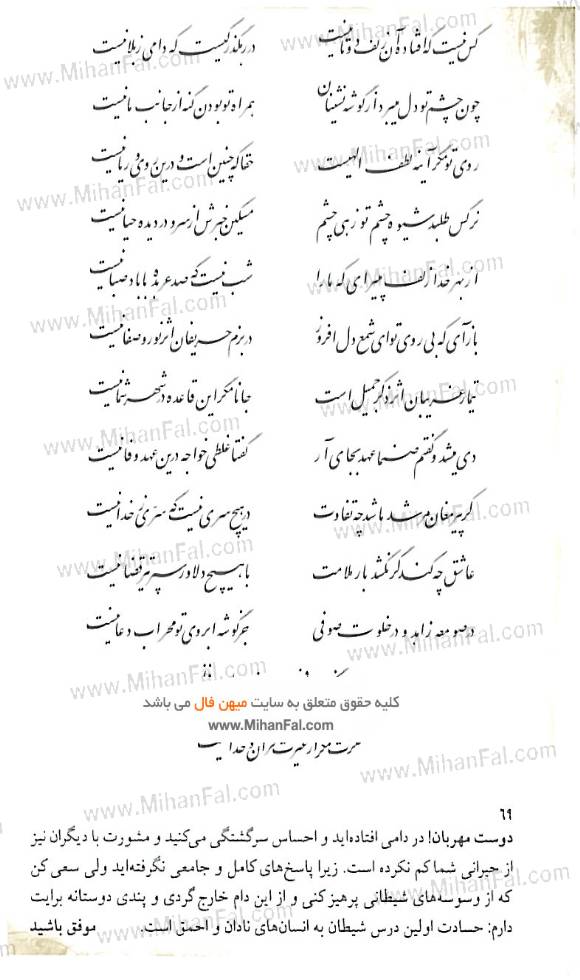 کس نیست که افتادهٔ آن زلف دوتا نیست در رهگذر کیست که دامی ز بلا نیست
چون چشم تو دل میبرد از گوشه نشینان همراه تو بودن گنه از جانب ما نیست
روی تو مگر آینه لطف الهیست حقا که چنین است و درین روی و ریا نیست
نرگس طلبد شیوه چشم تو زهی چشم مسکین خبرش از سر و در دیده حیا نیست
از بهر خدا زلف مپیرای که ما را شب نیست که صد عربده با باد صبا نیست
بازآی که بی روی تو ای شمع دل افروز در بزم حریفان اثر نور و صفا نیست
تیمار غریبان اثر ذکر جمیل است جانا مگر این قاعده در شهر شما نیست
دی میشد و گفتم صنما عهد بجای آر گفتا غلطی خواجه درین عهد وفا نیست
گر پیر مغان مرشد ما شد چه تفاوت در هیچ سری نیست که سری ز خدا نیست
عاشق چه کند گر نکشد بار ملامت با هیچ دلاور سپر تیر قضا نیست
در صومعه زاهد و در خلوت صوفی جز گوشه ابروی تو محراب دعا نیست
کلیه حقوق متعلق به سایت میهن فال می باشد
www.MihanFal.com
۶۹
دوست مهربان! در دامی افتاده‌اید و احساس سرگشتگی می‌کنید و مشورت با دیگران نیز
از حیرانی شما کم نکرده است. زیرا پاسخ‌های کامل و جامعی نگرفته‌اید ولی سعی کن
که از وسوسه‌های شیطانی پرهیز کنی و از این دام خارج گردی و پندی دوستانه برایت
دارم: حسادت اولین درس شیطان به انسان‌های نادان و احمق است. موفق باشید